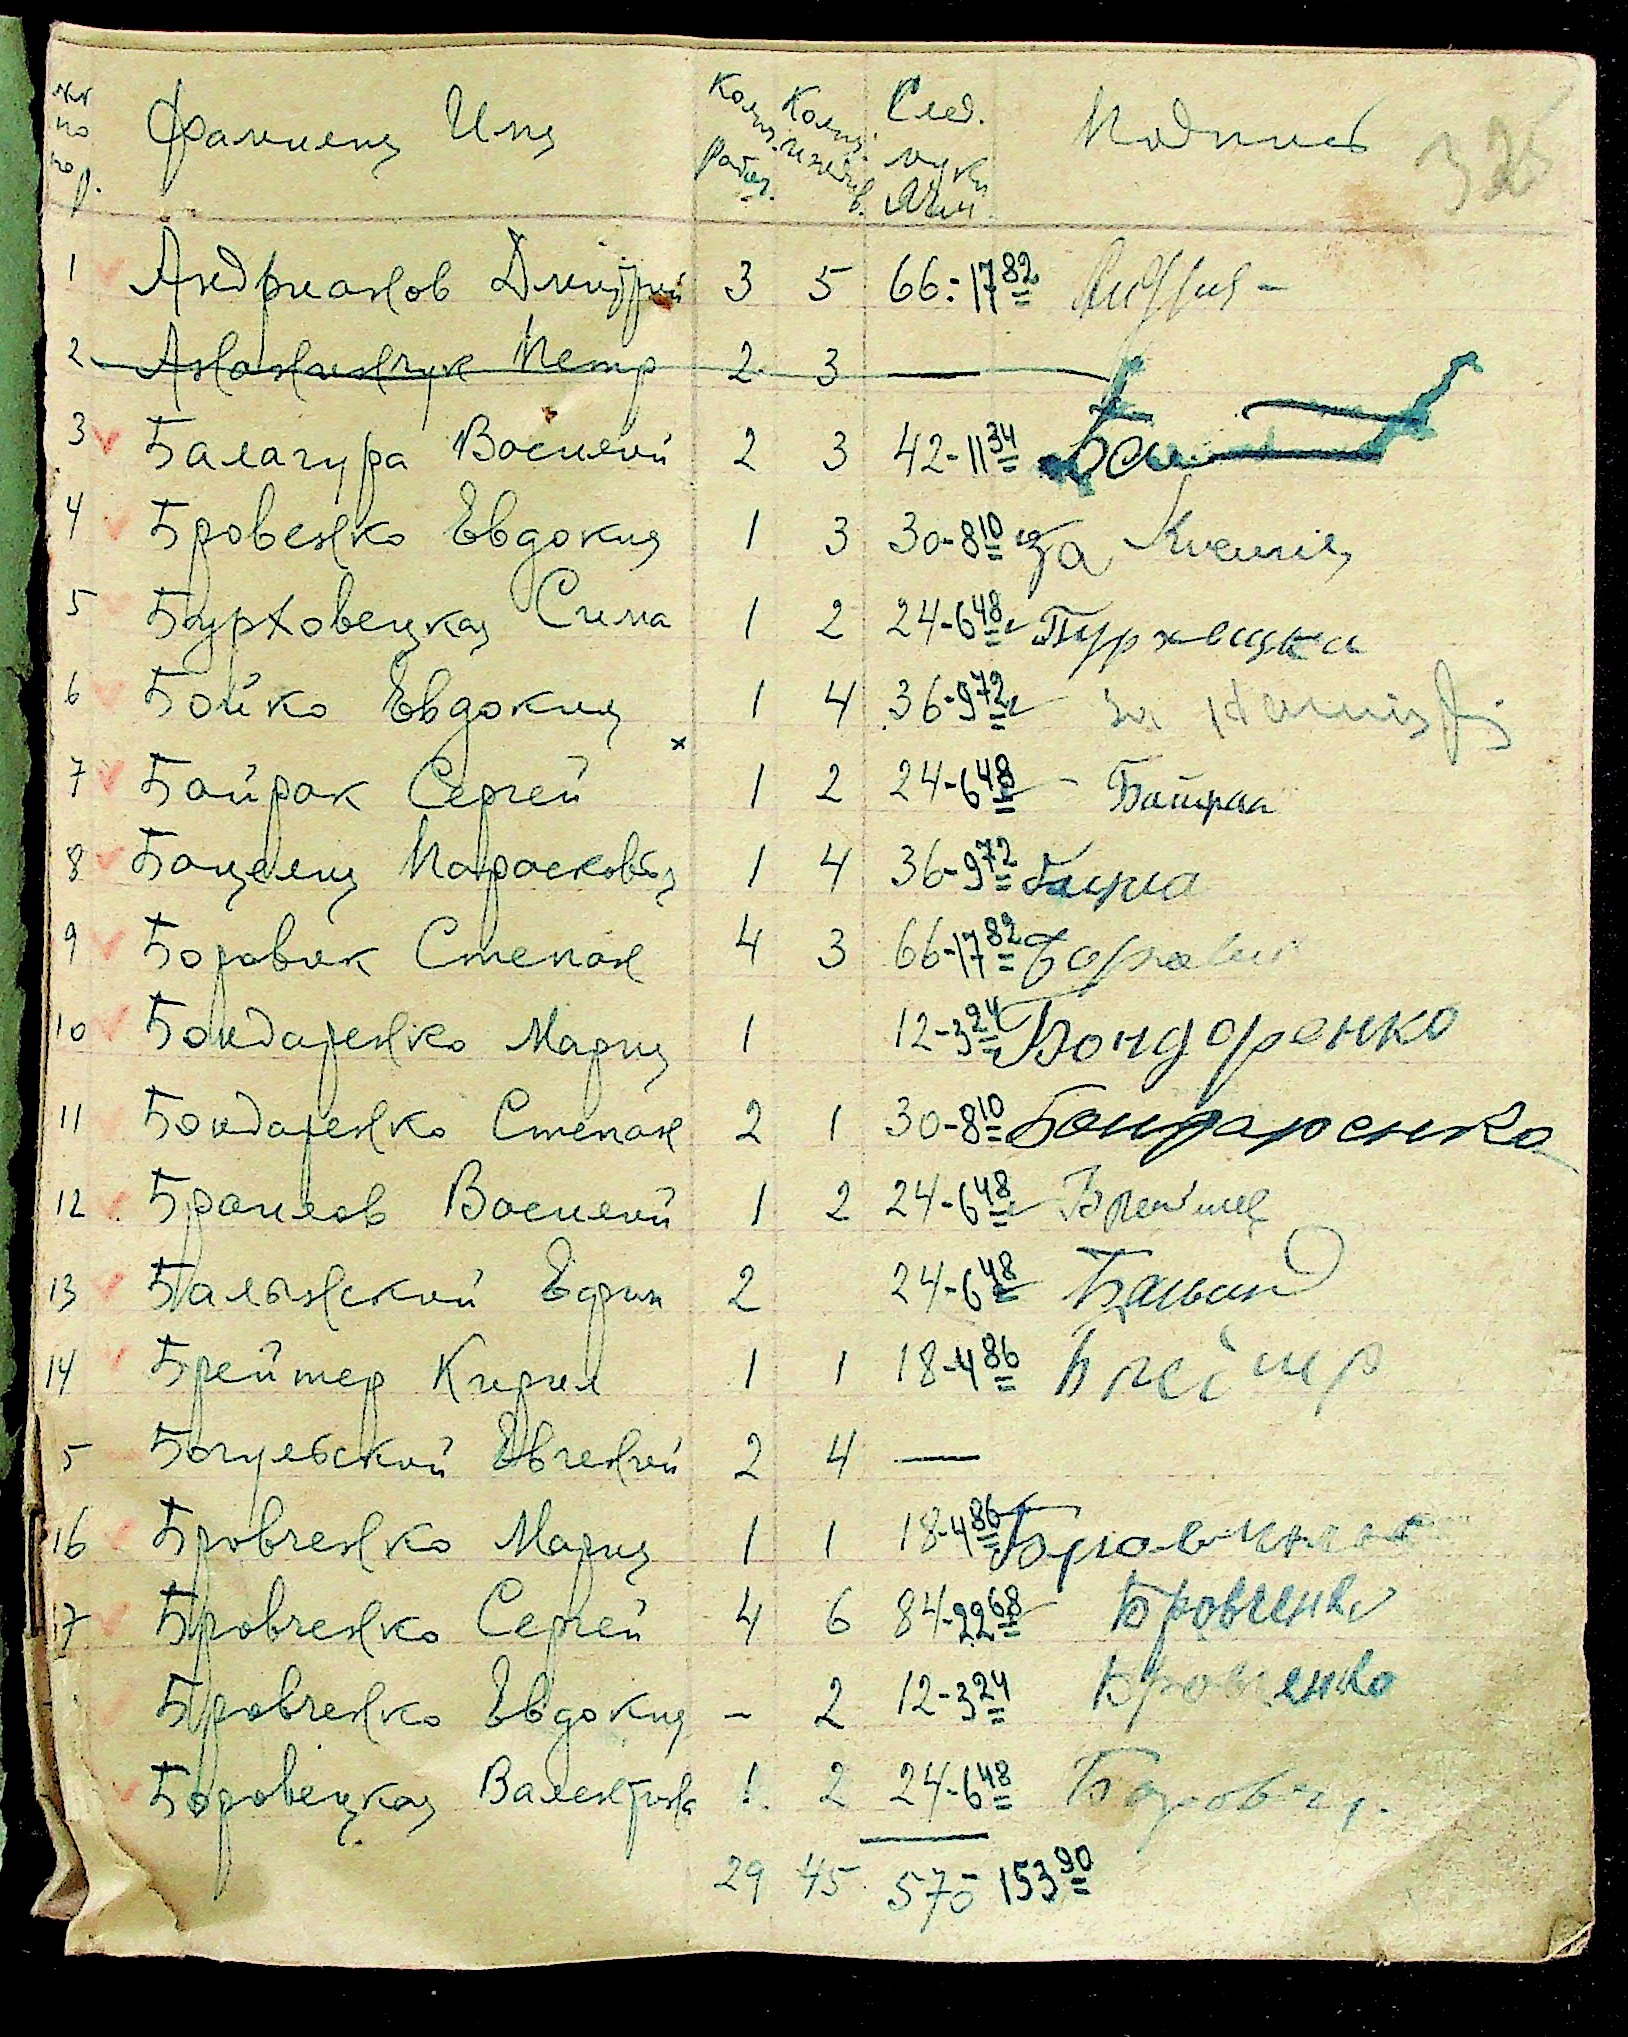 №№ по пор. Фамилия Имя Колич. работ. Колич. иждив. След. муки Подпись 325
1 Андрианов Дмитрий 3 5 66-17 82
2 Ананинчук Петр 2 3 —
3 Балагура Василий 2 3 42-11 34
4 Бровенко Евдокия 1 3 30-8 10 за
5 Бурховецкая Сима 1 2 24-6 48 Пурховицка
6 Бойко Евдокия 1 4 36-9 72 за
7 Байрак Сергей 1 2 24-6 48 - Байрак
8 Бацелия Парасковья 1 4 36-9 72
9 Боровик Степан 4 3 66-17 82 Боровик
10 Бондаренко Мария 1 12-3 24 Бондоренко
11 Бондаренко Степан 2 1 30-8 10 Бондаренко
12 Браилов Василий 1 2 24-6 48
13 Балынский Ефим 2 24-6 48
14 Брейтер Кирил 1 1 18-4 86
5 Богульский Евгений 2 4 —
16 Бровченко Мария 1 1 18-4 86
17 Бровченко Сергей 4 6 84-22 68 Бровченко
Бровченко Евдокия - 2 12-3 24 Бровченко
Боровецкая Валентина 1 2 24-6 48
29 45 570 153 90